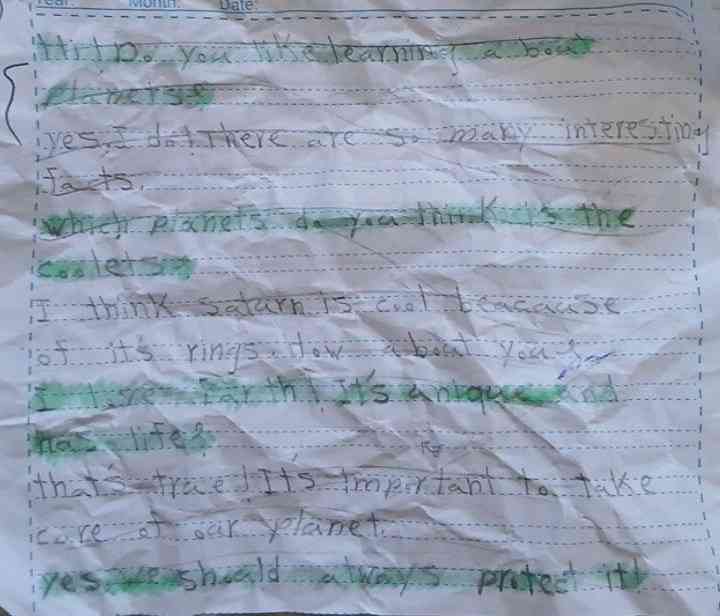 Year: Month: Date:
Hi! Do you like learning a bout
planets?
yes, I do! There are so many interesting
facts.
which planets do you think is the
coolets?
I think saturn is cool beacause
of it's rings. How about you?
I love Earth! It's unique and
has life?
that's true! It's important to take
care of our planet.
yes we should always protect it!